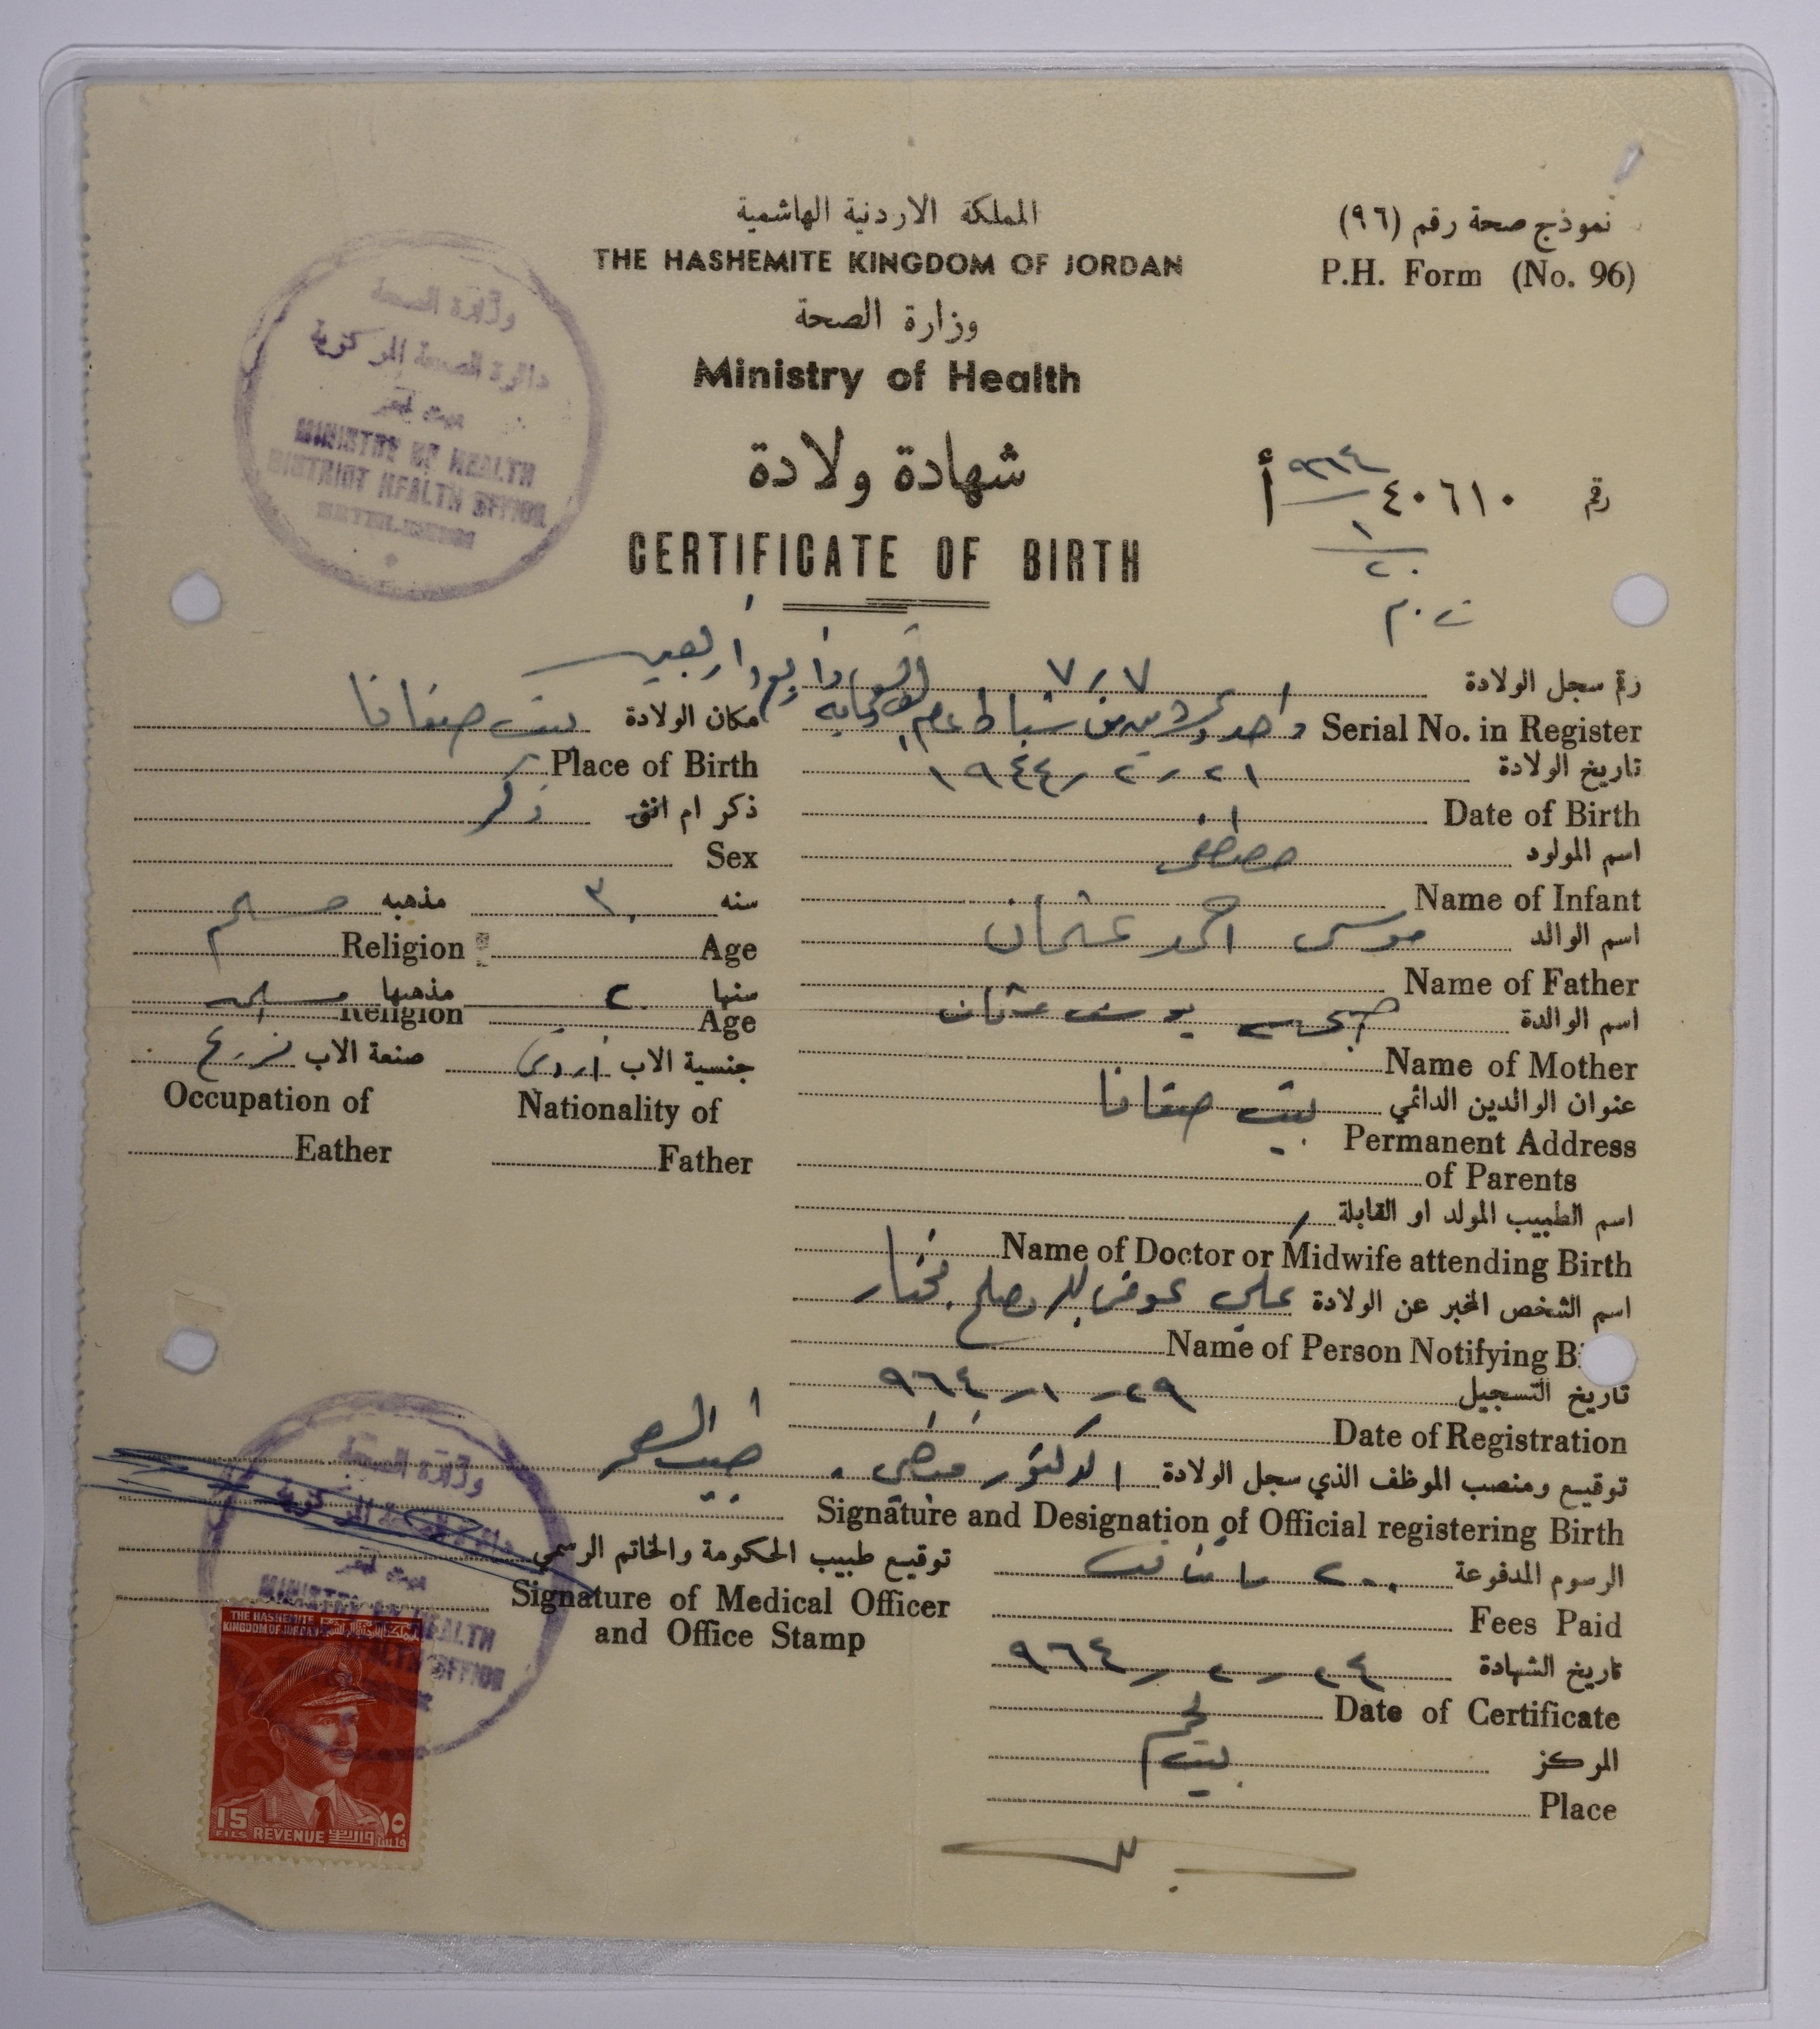 المملكة الاردنية الهاشمية
THE HASHEMITE KINGDOM OF JORDAN
نموذج صحة رقم (٩٦)
P.H. Form (No. 96)
وزارة الصحة
Ministry of Health
وزارة الصحة
دائرة الصحة المركزية
بيت لحم
MINISTRY OF HEALTH
DISTRICT HEALTH OFFICE
شهادة ولادة
CERTIFICATE OF BIRTH
رقم ٤٠٦١٠ أ
٩٦٤
١
٢٠
رقم سجل الولادة ٧/٧
Serial No. in Register
واحد وعشرين من شباط عام الف وتسعماية واربع واربعين
تاريخ الولادة ٢١/٢/١٩٤٤
Date of Birth
مكان الولادة بيت صفافا
Place of Birth
ذكر ام انثى ذكر
Sex
اسم المولود مصطفى
Name of Infant
اسم الوالد موسى احمد عثمان
Name of Father
سنه ٣٠ مذهبه مسلم
Age
Religion
اسم الوالدة صبحه يوسف عثمان
Name of Mother
سنها ٢٠ مذهبها مسلمه
Age
Religion
جنسية الاب اردني
Nationality of Father
صنعة الاب مزارع
Occupation of Eather
عنوان الوالدين الدائمي بيت صفافا
Permanent Address of Parents
اسم الطبيب المولد او القابلة
Name of Doctor or Midwife attending Birth
اسم الشخص المخبر عن الولادة علي عوض الله مصلح مختار
Name of Person Notifying Bi
تاريخ التسجيل ٢٩/١/٩٦٤
Date of Registration
توقيع ومنصب الموظف الذي سجل الولادة الدكتور طبيب الصحة
Signature and Designation of Official registering Birth
توقيع طبيب الحكومة والخاتم الرسمي
Signature of Medical Officer
and Office Stamp
الرسوم المدفوعة ٢٠٠ مائتان
Fees Paid
تاريخ الشهادة ٢٤/٢/٩٦٤
Date of Certificate
المركز بيت لحم
Place
وزارة الصحة
دائرة الصحة المركزية
بيت لحم
MINISTRY OF HEALTH
HEALTH OFFICE
THE HASHEMITE
KINGDOM OF JORDAN
المملكة الاردنية الهاشمية
15 ١٥
FILS REVENUE واردات فلسا